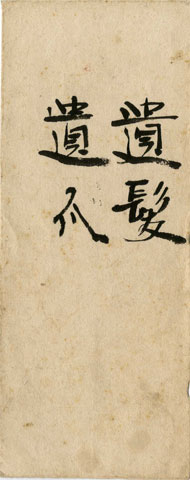 遺髪
遺爪